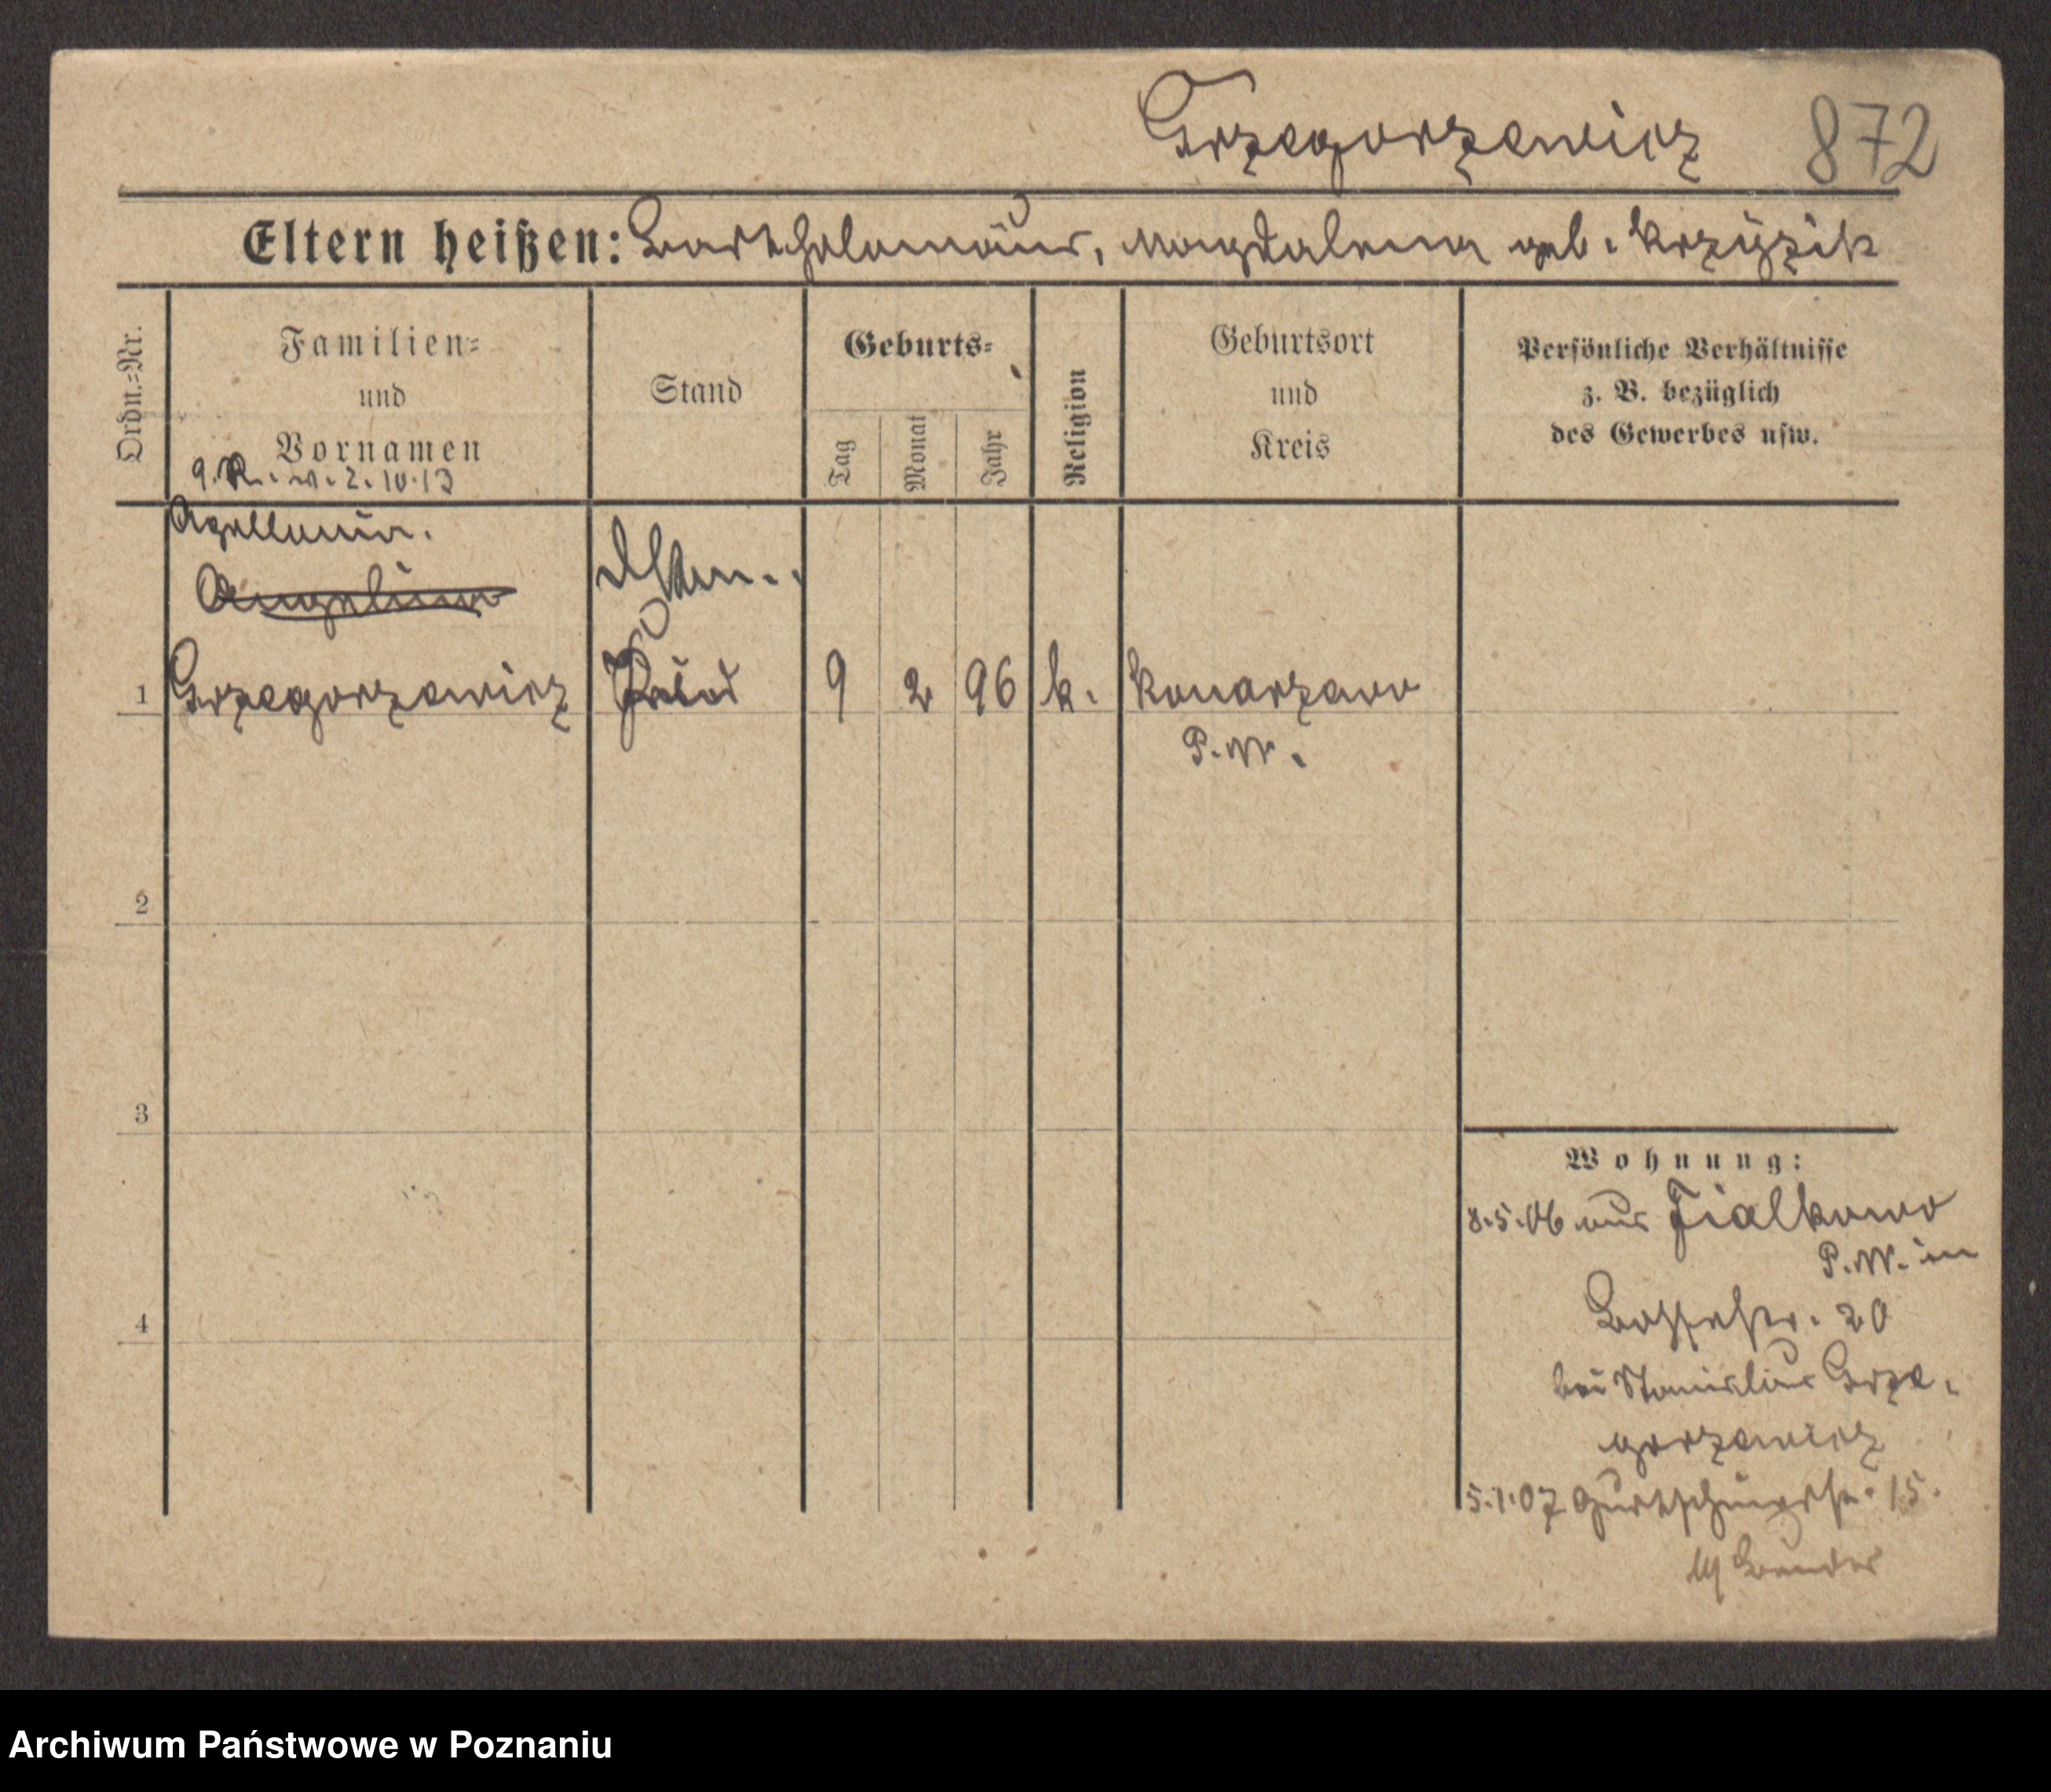 Grzegorzewicz 872
Eltern heißen: Bartholomäus, Magdalena geb. Krzyżik
Ordn.=Nr.
Familien=
und
Vornamen
9. R. w. 2.10.13
Stand
Geburts=
Tag
Monat
Jahr
Religion
Geburtsort
und
Kreis
Persönliche Verhältnisse
z. B. bezüglich
des Gewerbes usw.
Apollonia.
Angelina
1 Grzegorzewicz 9 2 96 k. Konarzewo
P. W.
2
3
4
Wohnung:
8.5.06 aus Fialkowo
P. W. in
20
bei Stanislaus Grze-
gorzewicz
5.1.07 Gurtschinerstr. 15.
Archiwum Państwowe w Poznaniu